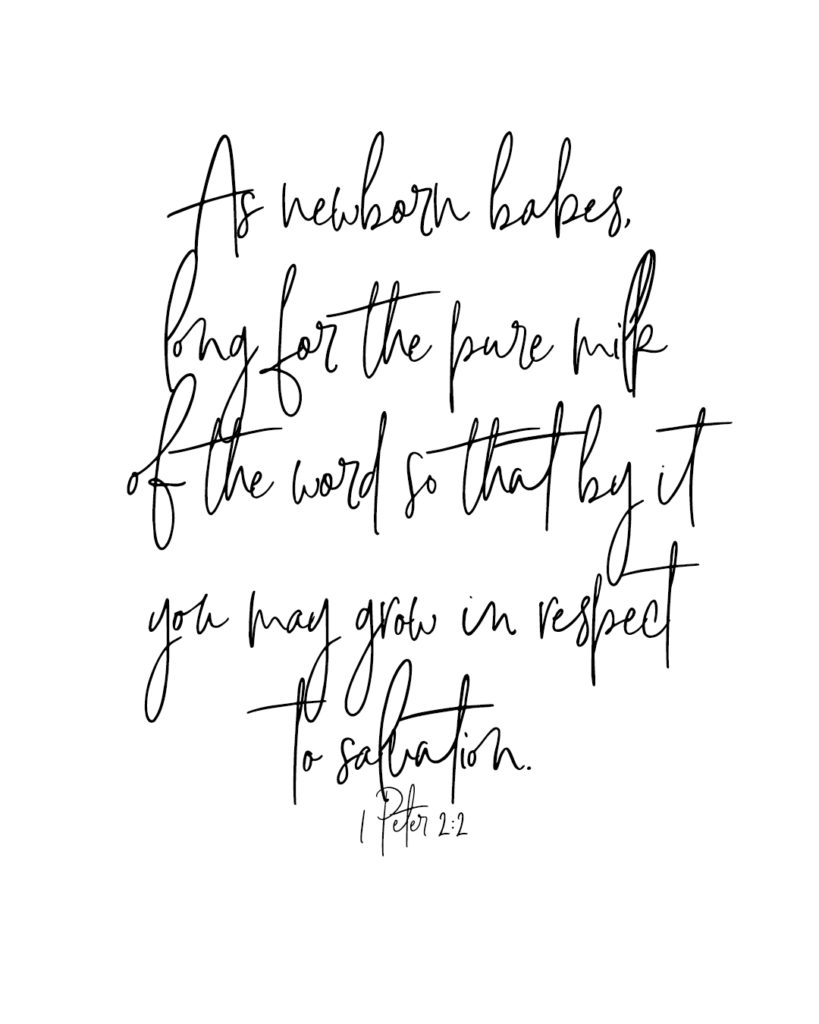 As newborn babes,
long for the pure milk
of the word so that by it
you may grow in respect
to salvation.
1 Peter 2:2